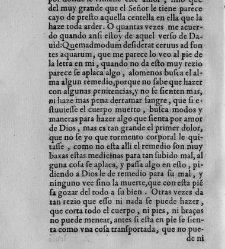 del muy grande que el Señor le tiene parece
cayo de presto aquella centella en ella que la
haze toda arder. O quantas vezes me acuer-
do quando ansi estoy de aquel verso de Da-
uid: Quemadmodum desiderat ceruus ad fon
tes aquarum, que me parece lo veo al pie de
la letra en mi, quando no da esto muy rezio
parece se aplaca algo, alomenos busca el al-
ma algun remedio, porque no sabe que hazer
con algunas penitencias, y no se sienten mas,
ni haze mas pena derramar sangre, que si e-
stuuiesse el cuerpo muerto, busca modos y
maneras para hazer algo que sienta por amor
de Dios, mas es tan grande el primer dolor,
que no se yo que tormento corporal le qui-
tasse, como no esta alli el remedio son muy
baxas estas medicinas para tan subido mal, al
guna cosa se aplaca, y passa algo en esto, pi-
diendo a Dios le de remedio para su mal, y
ninguno vee sino la muerte, que con esta piẽ
sa gozar del todo a su bien. Otras vezes da
tan rezio que esso ni nada se puede hazer,
que corta todo el cuerpo, ni pies, ni braços
no puede menear, antes si esta en pie se sien-
ta como vna cosa transportada, que no pue-
de ni